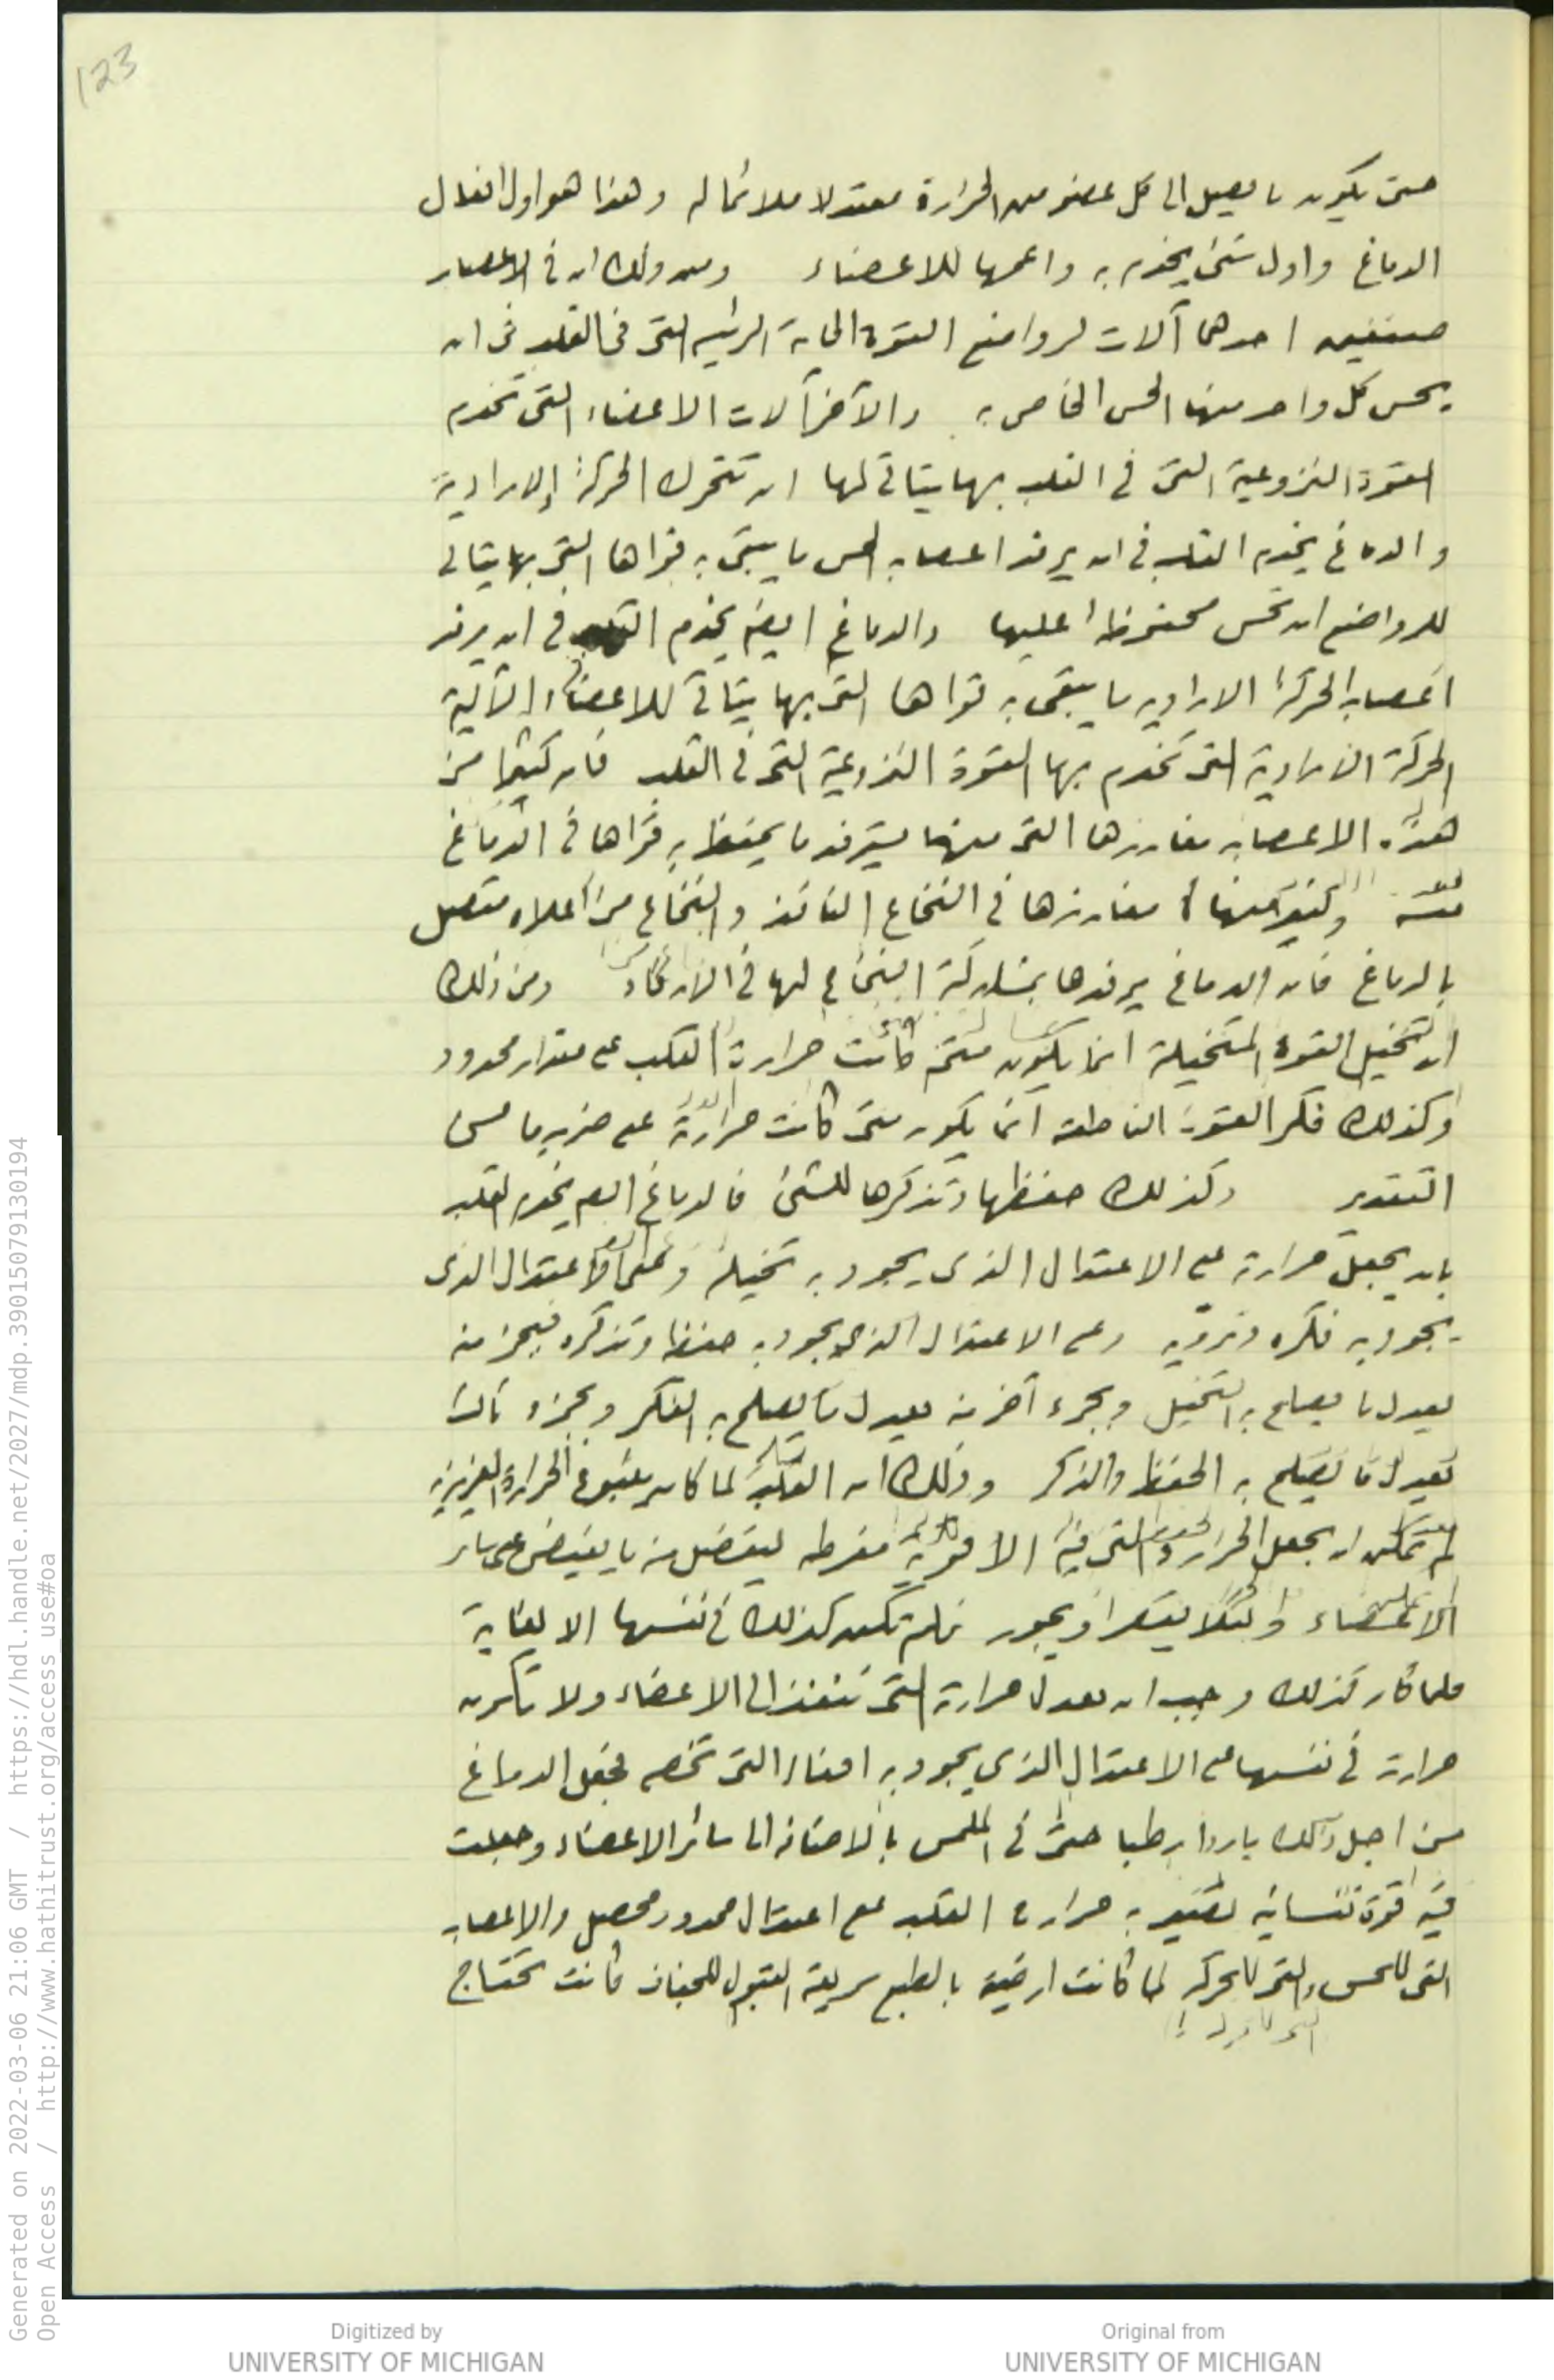 123
حتى يكون ما يصل الى كل عضو من الحرارة معتدلا ملائما له وهذا هو اول افعال
الدماغ واول شئ يخدم به واعمها للاعضاء ومن ذلك ان في الاعصاب
صنفين احدهما آلات لرواضع القوة الحاسة الرئيسه التى فى القلب فى ان
يحس كل واحد منها الحس الخاص به والآخر آلات الاعضاء التى تخدم
القوة النزوعية التى في القلب بها يتاتى لها ان تتحرك الحركة الارادية
والدماغ يخدم القلب في ان يرفد اعصاب الحس ما يبقى به قواها التى بها يتاتى
للرواضع ان تحس محفوظا عليها والدماغ ايضا يخدم القلب في ان يرفد
اعصاب الحركة الارادية ما يبقى به قواها التى بها يتاتى للاعضاء الآلية
الحركة الارادية التى تخدم بها القوة النزوعية التى في القلب فان كثيرا من
هذه الاعصاب مغارزها التى منها يسترفد ما يحفظ به قواها في الدماغ
نفسه وكثير منها مغارزها في النخاع النافذ والنخاع من اعلاه متصل
بالدماغ فان الدماغ يرفدها بمشاركة النخاع لها في الارفاد ومن ذلك
ان تخيل القوة المتخيلة انما يكون متى كانت حرارة القلب على مقدار محدود
وكذلك فكر القوة الناطقه انما يكون متى كانت حرارة على ضرب ما من
التقدير وكذلك حفظها وتذكرها للشئ فالدماغ ايضا يخدم القلب
بان يجعل حرارته على الاعتدال الذى يجود به تخيله وعلى الاعتدال الذى
يجود به فكره ورويه وعلى الاعتدال الذى يجود به حفظه وتذكره فبجزء منه
يعدل ما يصلح به التخيل وبجزء آخر منه يعدل ما يصلح به الفكر وبجزء ثالث
يعدل ما يصلح به الحفظ والذكر وذلك ان القلب لما كان ينبوع الحرارة الغريزية
لم يمكن ان يجعل الحرارة التى فيه الا قوية مفرطه ليفضل منه ما يفيض على سائر
الاعضاء ولئلا يقصر او يجور فلم تكن كذلك في نفسها الا لغاية
فلما كان كذلك وجب ان يعدل حرارته التى تنفذ الى الاعضاء ولا تكون
حرارته في نفسها على الاعتدال الذي يجود به افعاله التى تخصه فجعل الدماغ
من اجل ذلك باردا رطبا حتى في الملمس بالاضافة الى سائر الاعضاء وجعلت
فيه قوة نفسانية تصير به حرارة القلب على اعتدال محدود محصل والاعصاب
التى للحس والتى للحركة لما كانت ارضية بالطبع سريعة القبول للجفاف كانت تحتاج
Generated on 2022-03-06 21:06 GMT / https://hdl.handle.net/2027/mdp.39015079130194
Open Access / http://www.hathitrust.org/access_use#oa
Digitized by
UNIVERSITY OF MICHIGAN
Original from
UNIVERSITY OF MICHIGAN